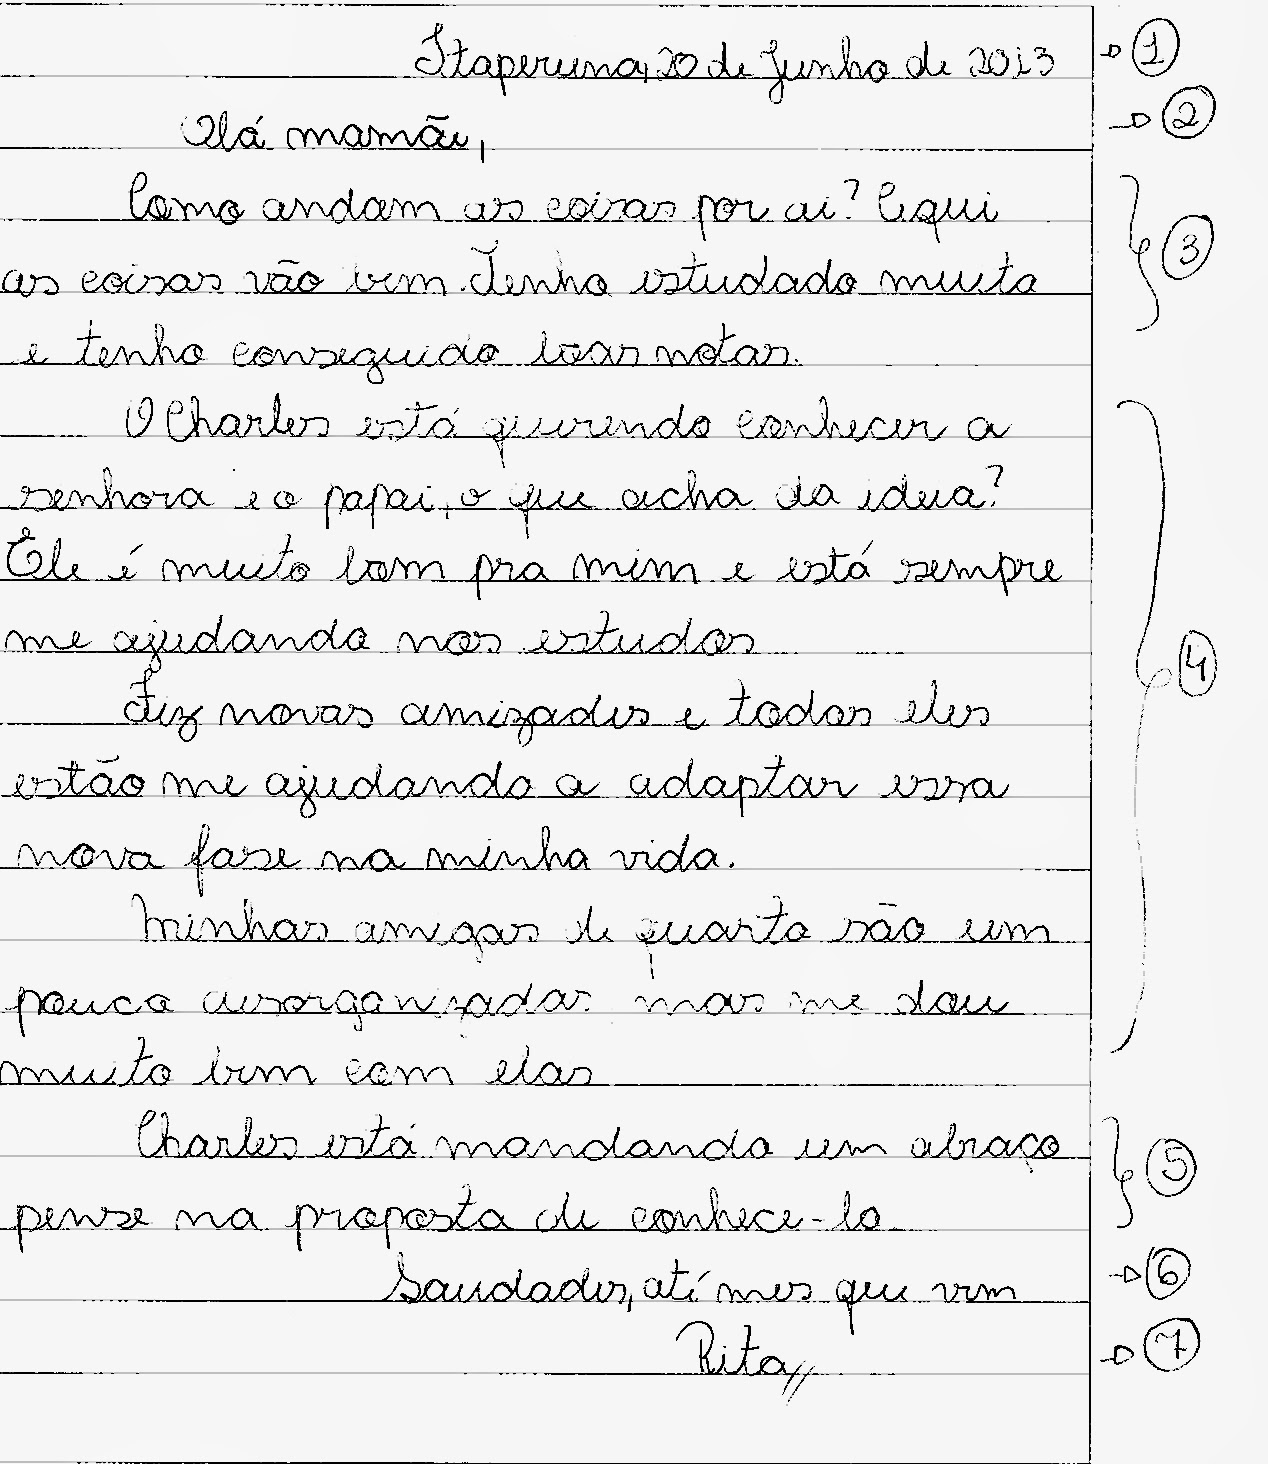 Itaperuna, 20 de Junho de 2013 → 1
Olá mamãe, → 2
Como andam as coisas por ai? Aqui
as coisas vão bem. Tenho estudado muito 3
e tenho conseguido boas notas.
O Charles está querendo conhecer a
senhora e o papai, o que acha da ideia?
Ele é muito bom pra mim e está sempre
me ajudando nos estudos 4
Fiz novas amizades e todos eles
estão me ajudando a adaptar essa
nova fase na minha vida.
Minhas amigas de quarto são um
pouco desorganizadas mas me dou
muito bem com elas
Charles está mandando um abraço 5
pense na proposta de conhece-lo
Saudades, até mes que vem → 6
Rita // → 7